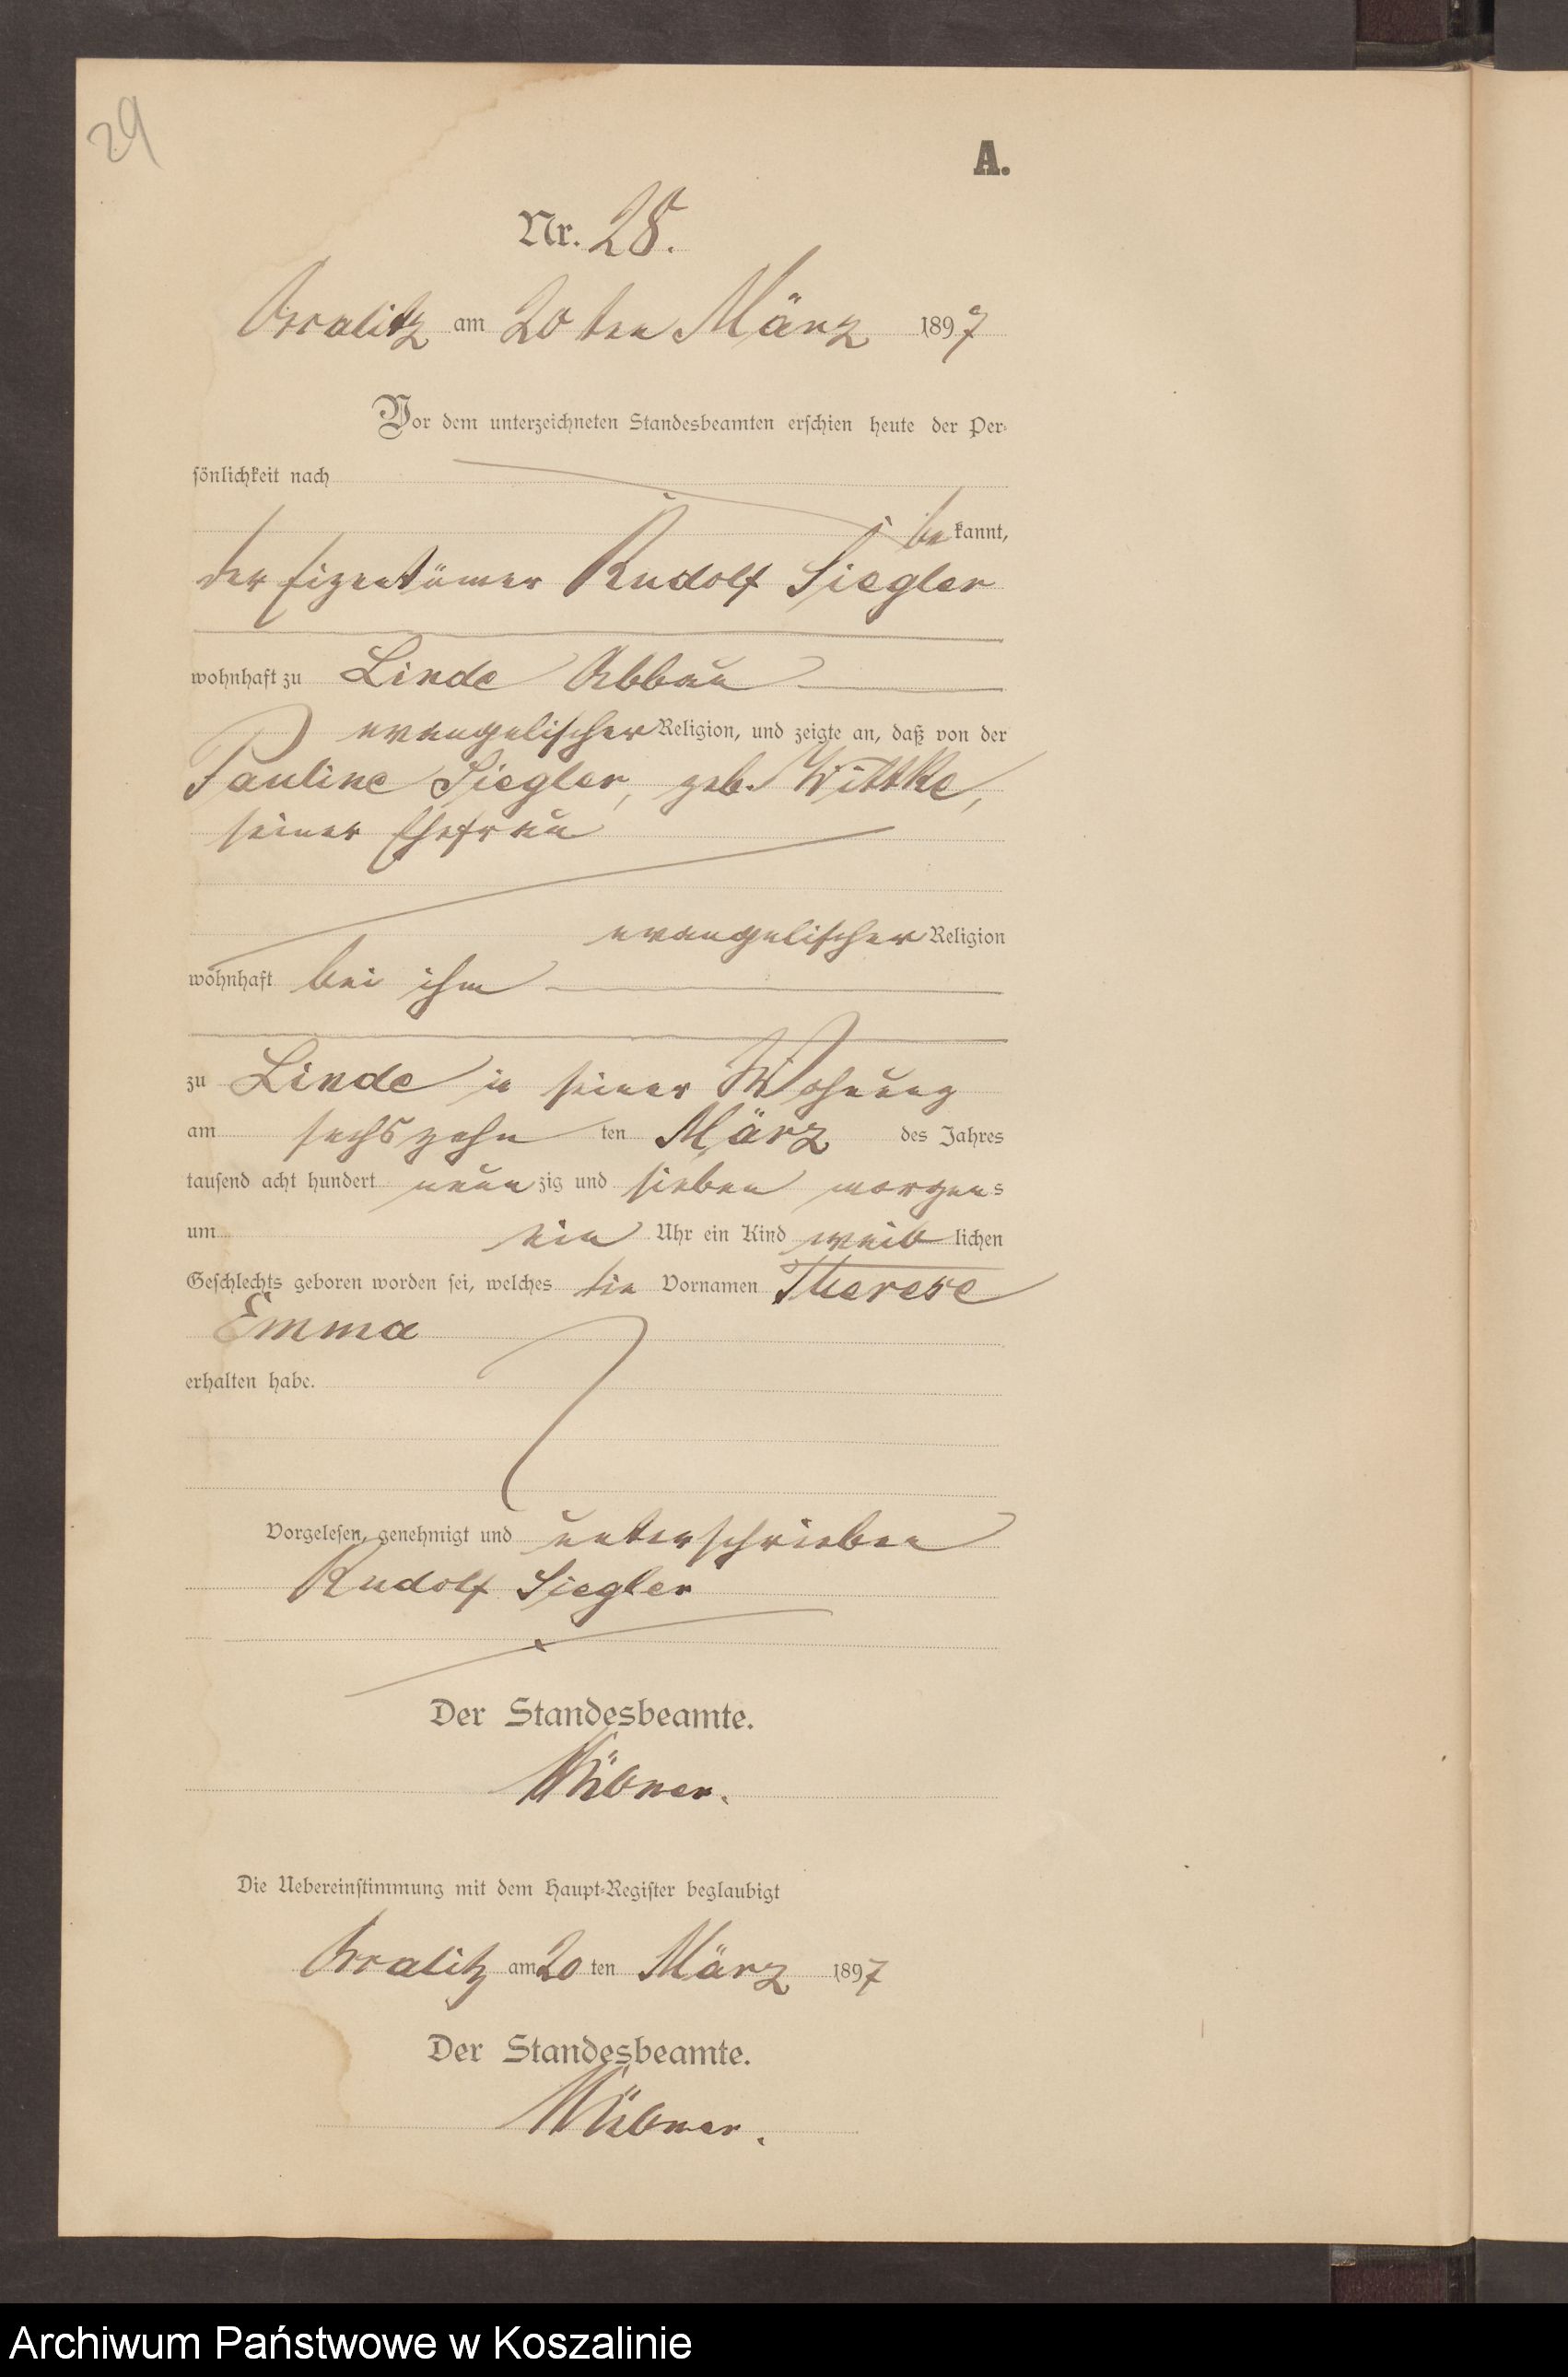 29
A.
Nr. 28.
am 20 ten März 1897
Vor dem unterzeichneten Standesbeamten erschien heute der Per-
sönlichkeit nach
be kannt,
der Eigentümer Rudolf Siegler
wohnhaft zu Linde Abbau
evangelischer Religion, und zeigte an, daß von der
Pauline Siegler, geb. Wittke,
seiner Ehefrau
evangelischer Religion
wohnhaft bei ihm
zu Linde in seiner Wohnung
am sechszehn ten März des Jahres
tausend acht hundert neun zig und sieben morgens
um ein Uhr ein Kind weib lichen
Geschlechts geboren worden sei, welches die Vornamen Therese
Emma
erhalten habe.
Vorgelesen, genehmigt und unterschrieben
Rudolf Siegler
Der Standesbeamte.
Die Uebereinstimmung mit dem Haupt-Register beglaubigt
am 20 ten März 1897
Der Standesbeamte.
Archiwum Państwowe w Koszalinie